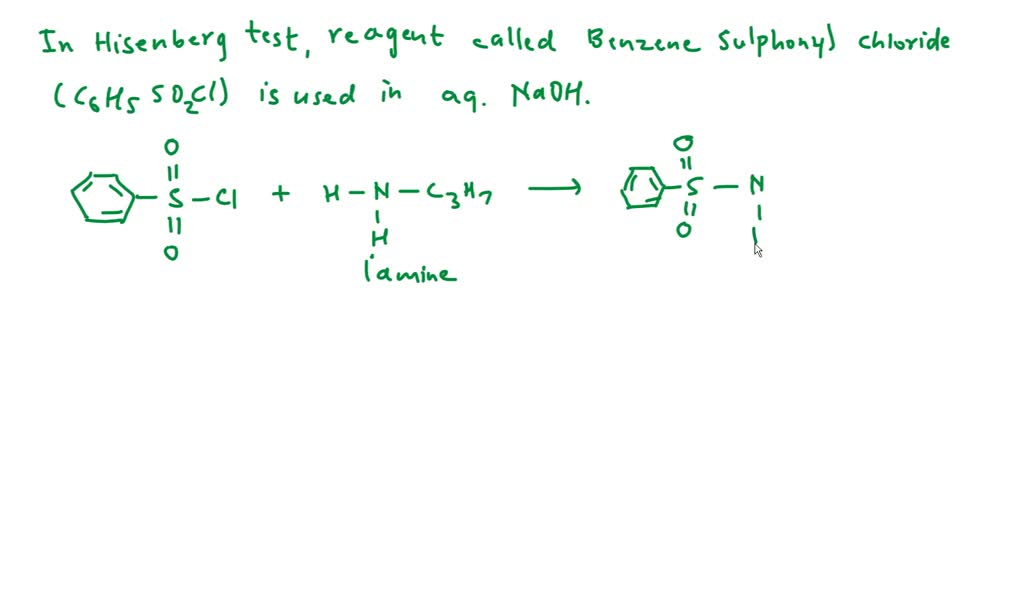 In Hisenberg test, reagent called Benzene Sulphonyl chloride
(C6H5 SO2Cl) is used in aq. NaOH.
O O
S - Cl + H - N - C3H7 → S - N
O H O
1°amine